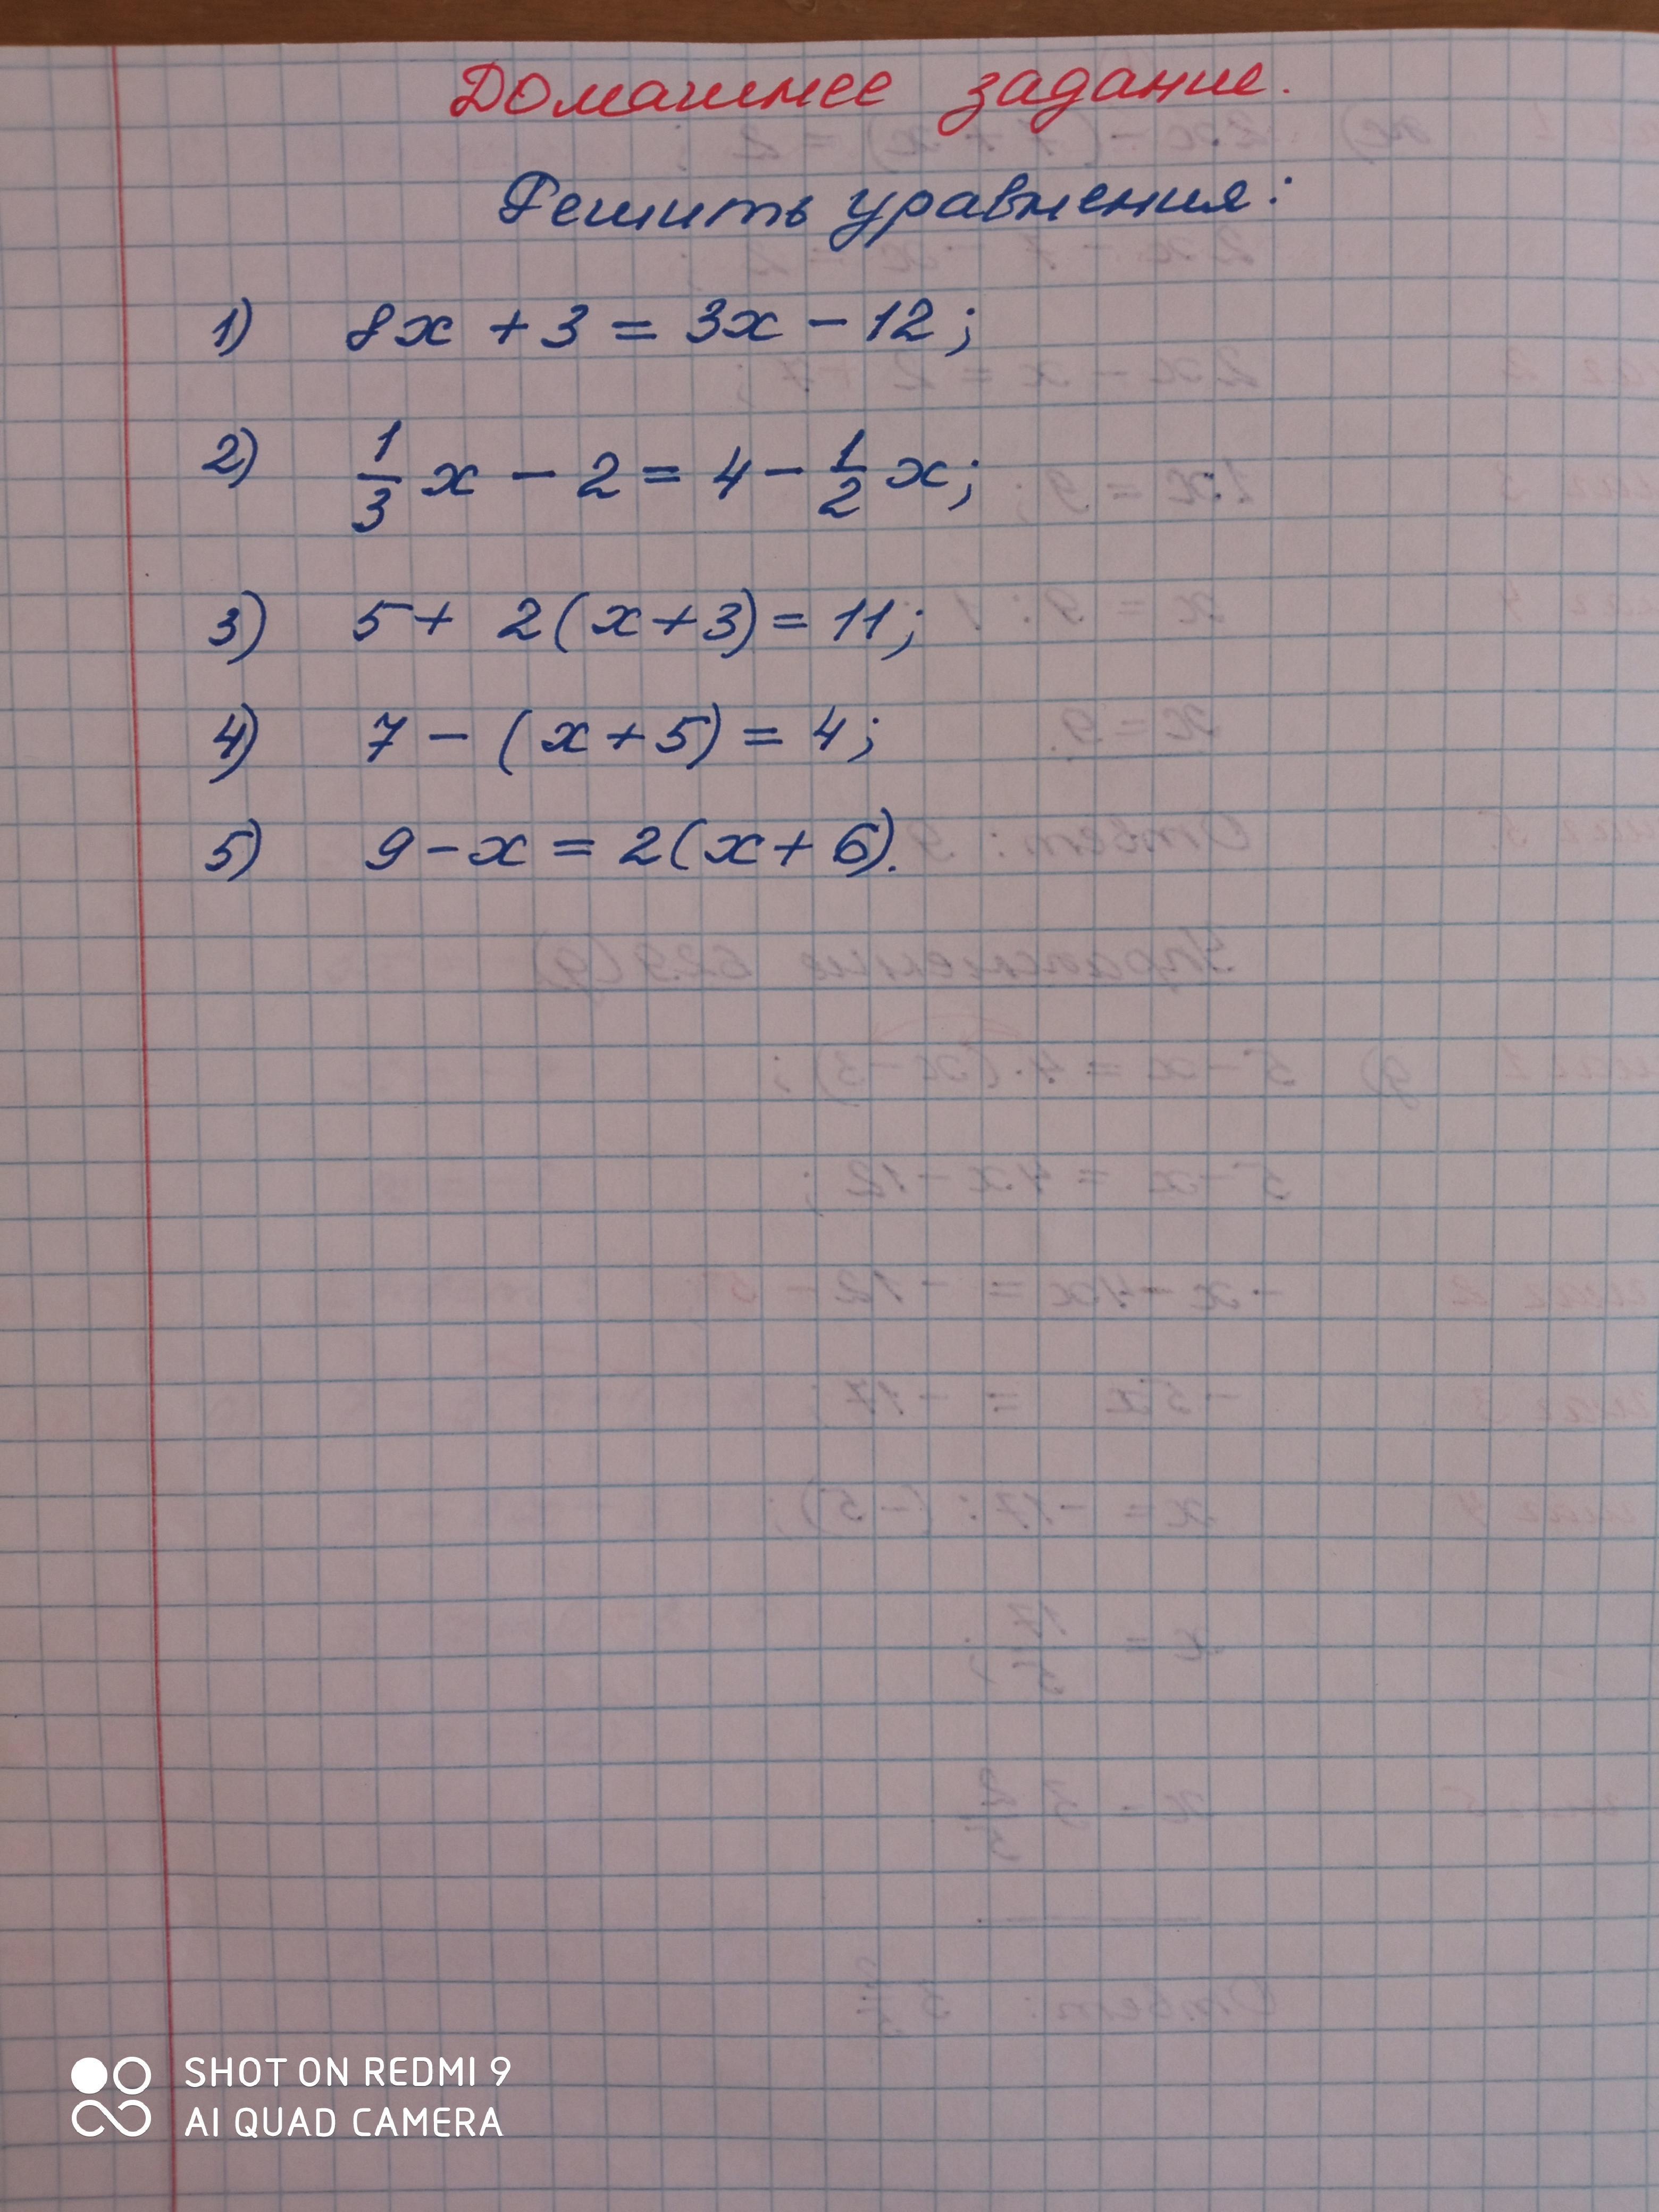 Домашнее задание.
Решить уравнения:
1) 8x + 3 = 3x - 12;
2) 1/3 x - 2 = 4 - 1/2 x;
3) 5 + 2(x + 3) = 11;
4) 7 - (x + 5) = 4;
5) 9 - x = 2(x + 6).
SHOT ON REDMI 9
AI QUAD CAMERA